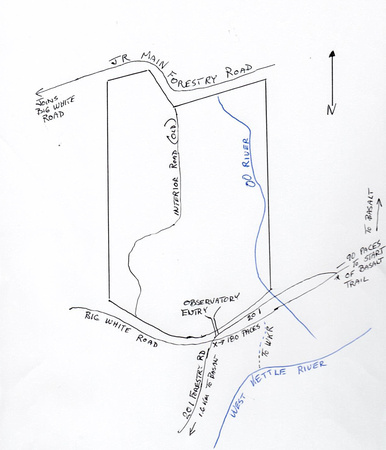 JR MAIN FORESTRY ROAD
JOINS
BIG WHITE
ROAD
N
INTERIOR ROAD (OLD)
RIVER
TO BASALT
90 PACES
TO START
OF BASALT
TRAIL
OBSERVATORY
ENTRY
BIG WHITE ROAD
201
180 PACES
TO WKR
201 FORESTRY RD
1.6 KM TO BASALT
WEST KETTLE RIVER